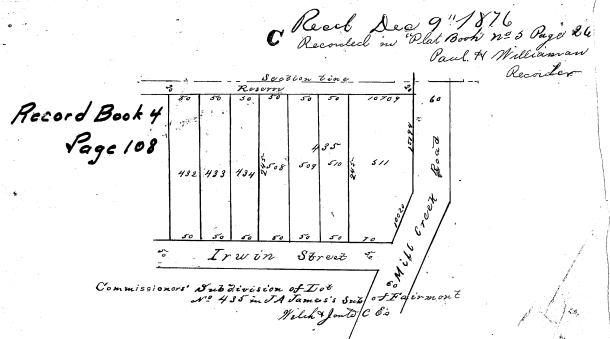 C Recd Dec 9" 1876
Recorded in "Plat Book No 5 Page 26
Paul. H Williamson
Recorder
Record Book 4
Page 108
Section Line
50 Reserve
50 50 50 50 50 50 10709 60
10494
435
432 433 434 245 508 509 510 245 511
10020
50 50 50 50 50 50 70
50 Irwin Street 50
Mill Creek Road
60
Commissioners' Subdivision of Lot
No 435 in J A James's Sub of Fairmont
Welch & C E's